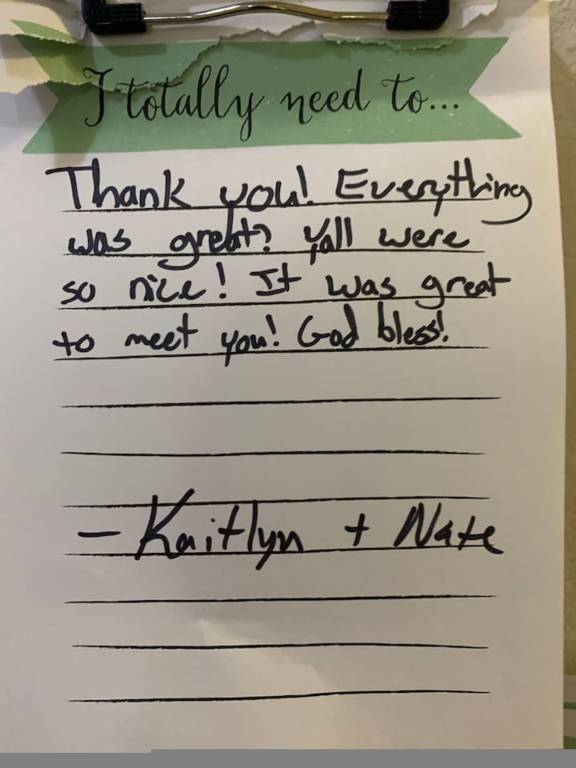 I totally need to...
Thank you! Everything
was great! Yall were
so nice! It was great
to meet you! God bless!
- Kaitlyn + Nate